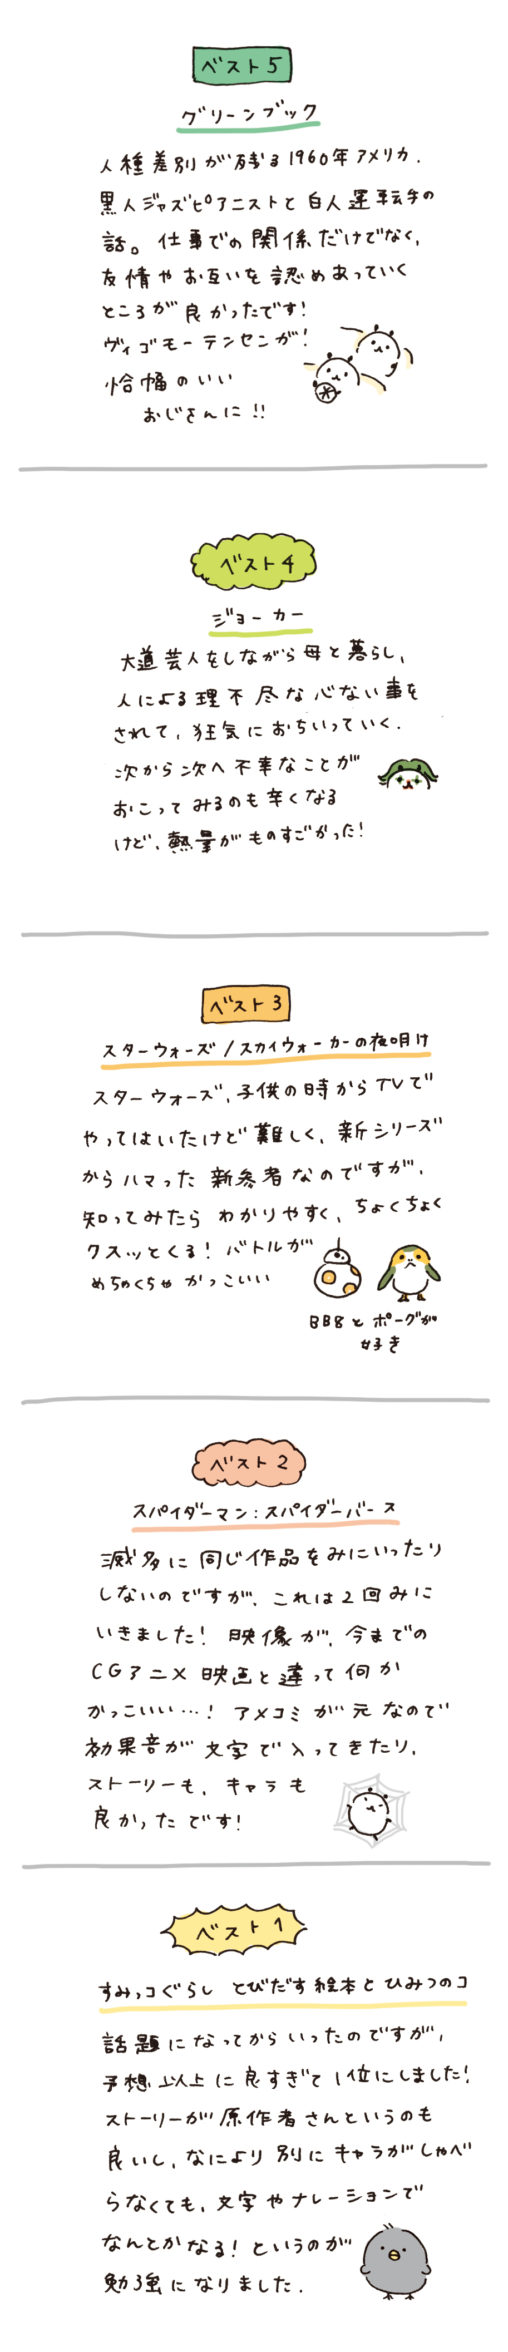 ベスト5
グリーンブック
人種差別が残る1960年アメリカ.
黒人ジャズピアニストと白人運転手の
話。仕事での関係だけでなく、
友情やお互いを認めあっていく
ところが良かったです!
ヴィゴモーテンセンが!
恰幅のいい
おじさんに!!
ベスト4
ジョーカー
大道芸人をしながら母と暮らし、
人による理不尽な心ない事を
されて、狂気におちいっていく.
次から次へ不幸なことが
おこってみるのも辛くなる
けど、熱量がものすごかった!
ベスト3
スターウォーズ/スカイウォーカーの夜明け
スターウォーズ、子供の時からTVで
やってはいたけど難しく、新シリーズ
からハマった新参者なのですが、
知ってみたらわかりやすく、ちょくちょく
クスッとくる!バトルが
めちゃくちゃかっこいい
BB8とポーグが
好き
ベスト2
スパイダーマン:スパイダーバース
滅多に同じ作品をみにいったり
しないのですが、これは2回みに
いきました!映像が、今までの
CGアニメ映画と違って何か
かっこいい…!アメコミが元なので
効果音が文字で入ってきたり、
ストーリーも、キャラも
良かったです!
ベスト1
すみっコぐらし とびだす絵本とひみつのコ
話題になってからいったのですが、
予想以上に良すぎて1位にしました!
ストーリーが原作者さんというのも
良いし、なにより別にキャラがしゃべ
らなくても、文字やナレーションで
なんとかなる!というのが
勉強になりました.